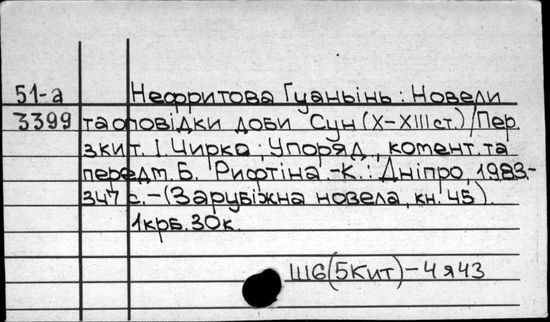 51-а Нефритова Гуаньінь: Новели
3399 та оповідки доби Сун (X-XIIIст.)/Пер.
з кит. І. Чирко; Упоряд., комент. та
передм. Б. Рифтіна.-К.: Дніпро, 1983.-
347 с.-(Зарубіжна новела, кн. 45).
1крб. 30к.
ІІІ6(5Кит)-4я43